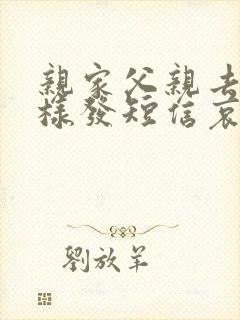 親家父親去
樣發短信哀
劉放羊